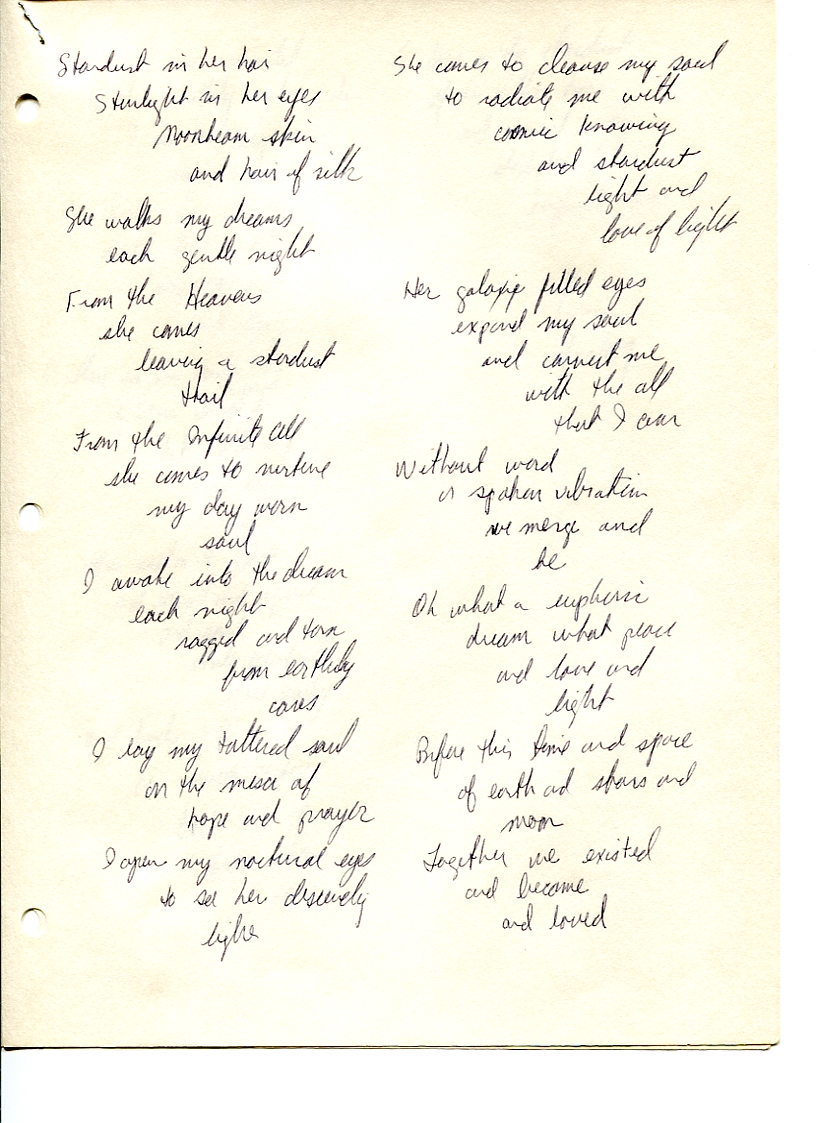 Stardust in her hair
Starlight in her eyes
Moonbeam skin
and hair of silk
She walks my dreams
each gentle night
From the Heavens
she comes
leaving a stardust
trail
From the Infinite All
she comes to nurture
my day worn
soul
I awake into the dream
each night
ragged and torn
from earthly
cares
I lay my tattered soul
on the mesa of
hope and prayer
I open my noctural eyes
to see her
light
She comes to cleanse my soul
to radiate me with
cosmic knowing
and stardust
light and
love of light
Her galaxie filled eyes
expand my soul
and connect me
with the all
that I am
Without word
or spoken vibration
we merge and
be
Oh what a euphoric
dream what peace
and love and
light
Before this time and space
of earth and stars and
moon
Together we existed
and became
and loved